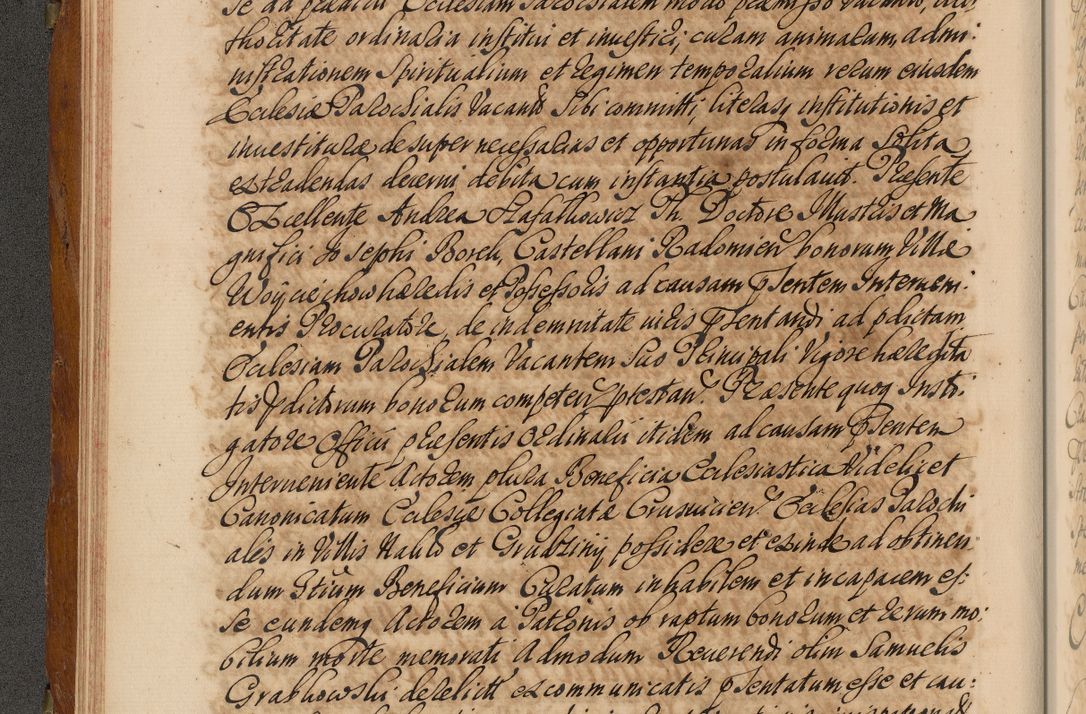 se ad prædictā Ecclesiam Parochialem modo præmisso vacantē, au:
thoritate ordinaria institui et investiri, curam animarum, admi:
nistrationem Spiritualium et regimen temporalium rerum eiusdem
Ecclesiæ Parochialis Vacantis Sibi committi, literas, institutionis et
investituræ desuper necessarias et opportunas in forma Solita
extradendas decerni debita cum instantia postulavit. Præsente
Excellente Andrea Rafałkowicz Ph. Doctore Illustris et Ma
gnifici Josephi Borch, Castellani Radomien bonorum Villæ
Woyciechow hæredis et Possessoris ad causam pſentem Interveni:
entis Procuratore, de indemnitate iuris pſentandi ad pdictam
Ecclesiam Parochialem Vacantem Suo Principali Vigore hæredita
tis pdictorum bonorum competen pstestan. Præsente quoq Insti:
gatore Officii præsentis Ordinarii itidem ad causam pſentem
Interveniente Actorem plura Beneficia Ecclesiastica Videlicet
Canonicatum Ecclesiæ Collegiatæ Crusvicien. Ecclesias Parochi
ales in Villis et Grudziny possidere et exinde ad obtinen
dum Beneficium Curatum inhabilem et incapacem es:
se eundemq Actorem a Patronis ob raptum bonorum et rerum mo:
bilium morte memorati Admodum Reverendi olim Samuelis
Grabkowski derelict excommunicatis pſentatum esse et cau: